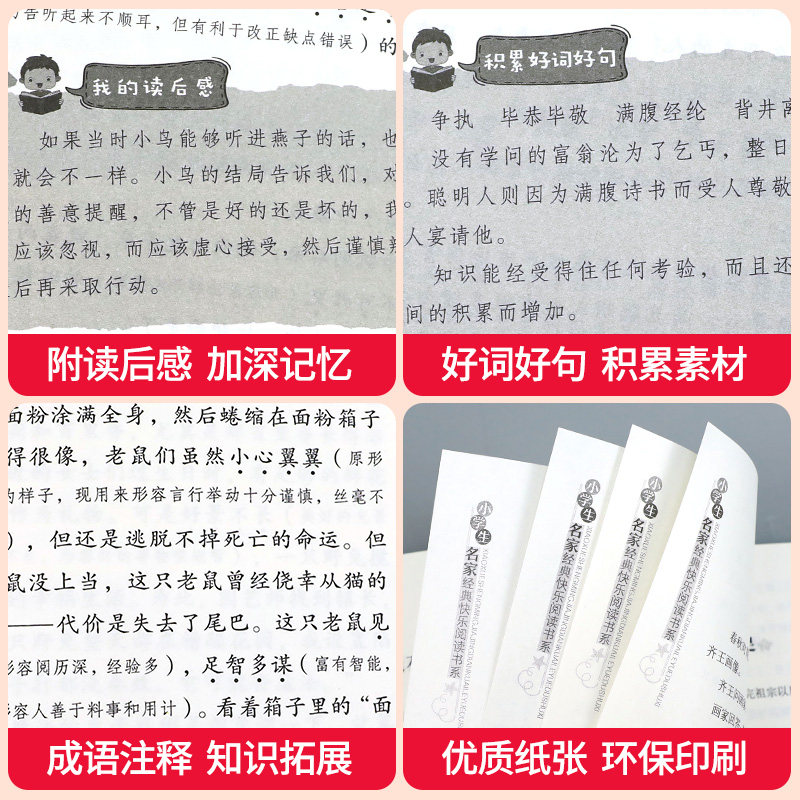 的告听起来不顺耳，但有利于改正缺点错误）的
我的读后感
如果当时小鸟能够听进燕子的话，也
就会不一样。小鸟的结局告诉我们，对
的善意提醒，不管是好的还是坏的，我
应该忽视，而应该虚心接受，然后谨慎
后再采取行动。
附读后感 加深记忆
积累好词好句
争执 毕恭毕敬 满腹经纶 背井离
没有学问的富翁沦为了乞丐，整日
。聪明人则因为满腹诗书而受人尊敬
人宴请他。
知识能经受得住任何考验，而且还
间的积累而增加。
好词好句 积累素材
面粉涂满全身，然后蜷缩在面粉箱子
得很像，老鼠们虽然小心翼翼（原形
的样子，现用来形容言行举动十分谨慎，丝毫不
），但还是逃脱不掉死亡的命运。但
鼠没上当，这只老鼠曾经侥幸从猫的
——代价是失去了尾巴。这只老鼠见
形容阅历深，经验多），足智多谋（富有智能，
形容人善于料事和用计）。看着箱子里的“面
成语注释 知识拓展
小学生
名家经典快乐阅读书系
小学生
名家经典快乐阅读书系
小学生
名家经典快乐阅读书系
小学生
名家经典快乐阅读书系
XIAOXUESHENGMINGJIAJINGDIANKUAILEYUEDUSHUXI
齐王画像。
画家回答
优质纸张 环保印刷